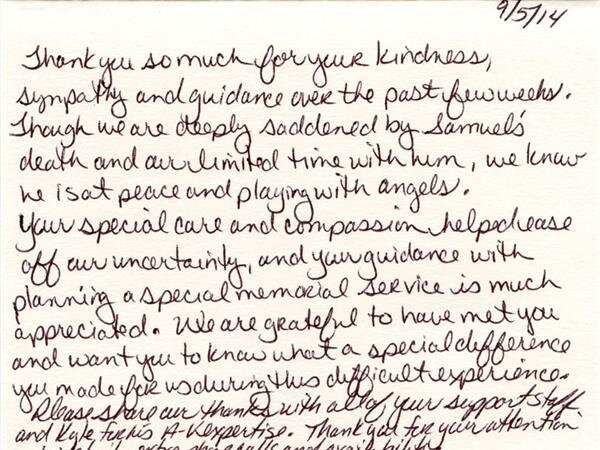 9/5/14
Thank you so much for your kindness,
sympathy and guidance over the past few weeks.
Though we are deeply saddened by Samuel's
death and our limited time with him, we know
he is at peace and playing with angels.
Your special care and compassion helped ease
off our uncertainty, and your guidance with
planning a special memorial service is much
appreciated. We are grateful to have met you
and want you to know what a special difference
you made for us during this difficult experience.
Please share our thanks with all of your support staff
and Kyle for his A-V expertise. Thank you for your attention